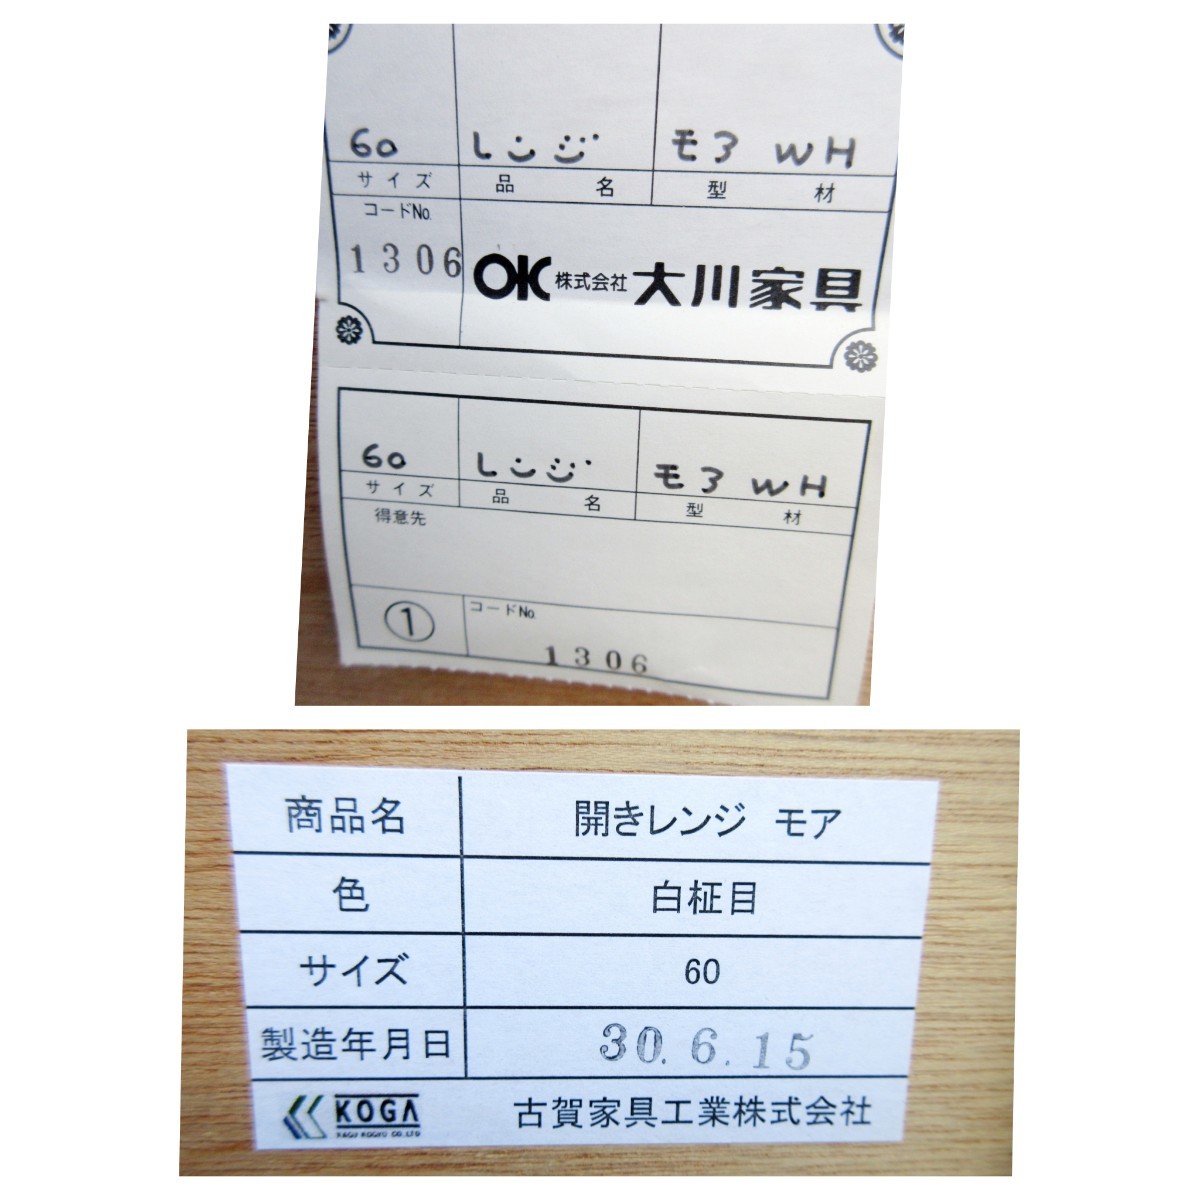 60 レンジ モア WH
サイズ 品名 型材
コードNo.
1306 OK 株式会社 大川家具
60 レンジ モア WH
サイズ 品名 型材
得意先
① コードNo.
1306
商品名 開きレンジ モア
色 白柾目
サイズ 60
製造年月日 30.6.15
KOGA 古賀家具工業株式会社
KAGU KOGYO CO.,LTD